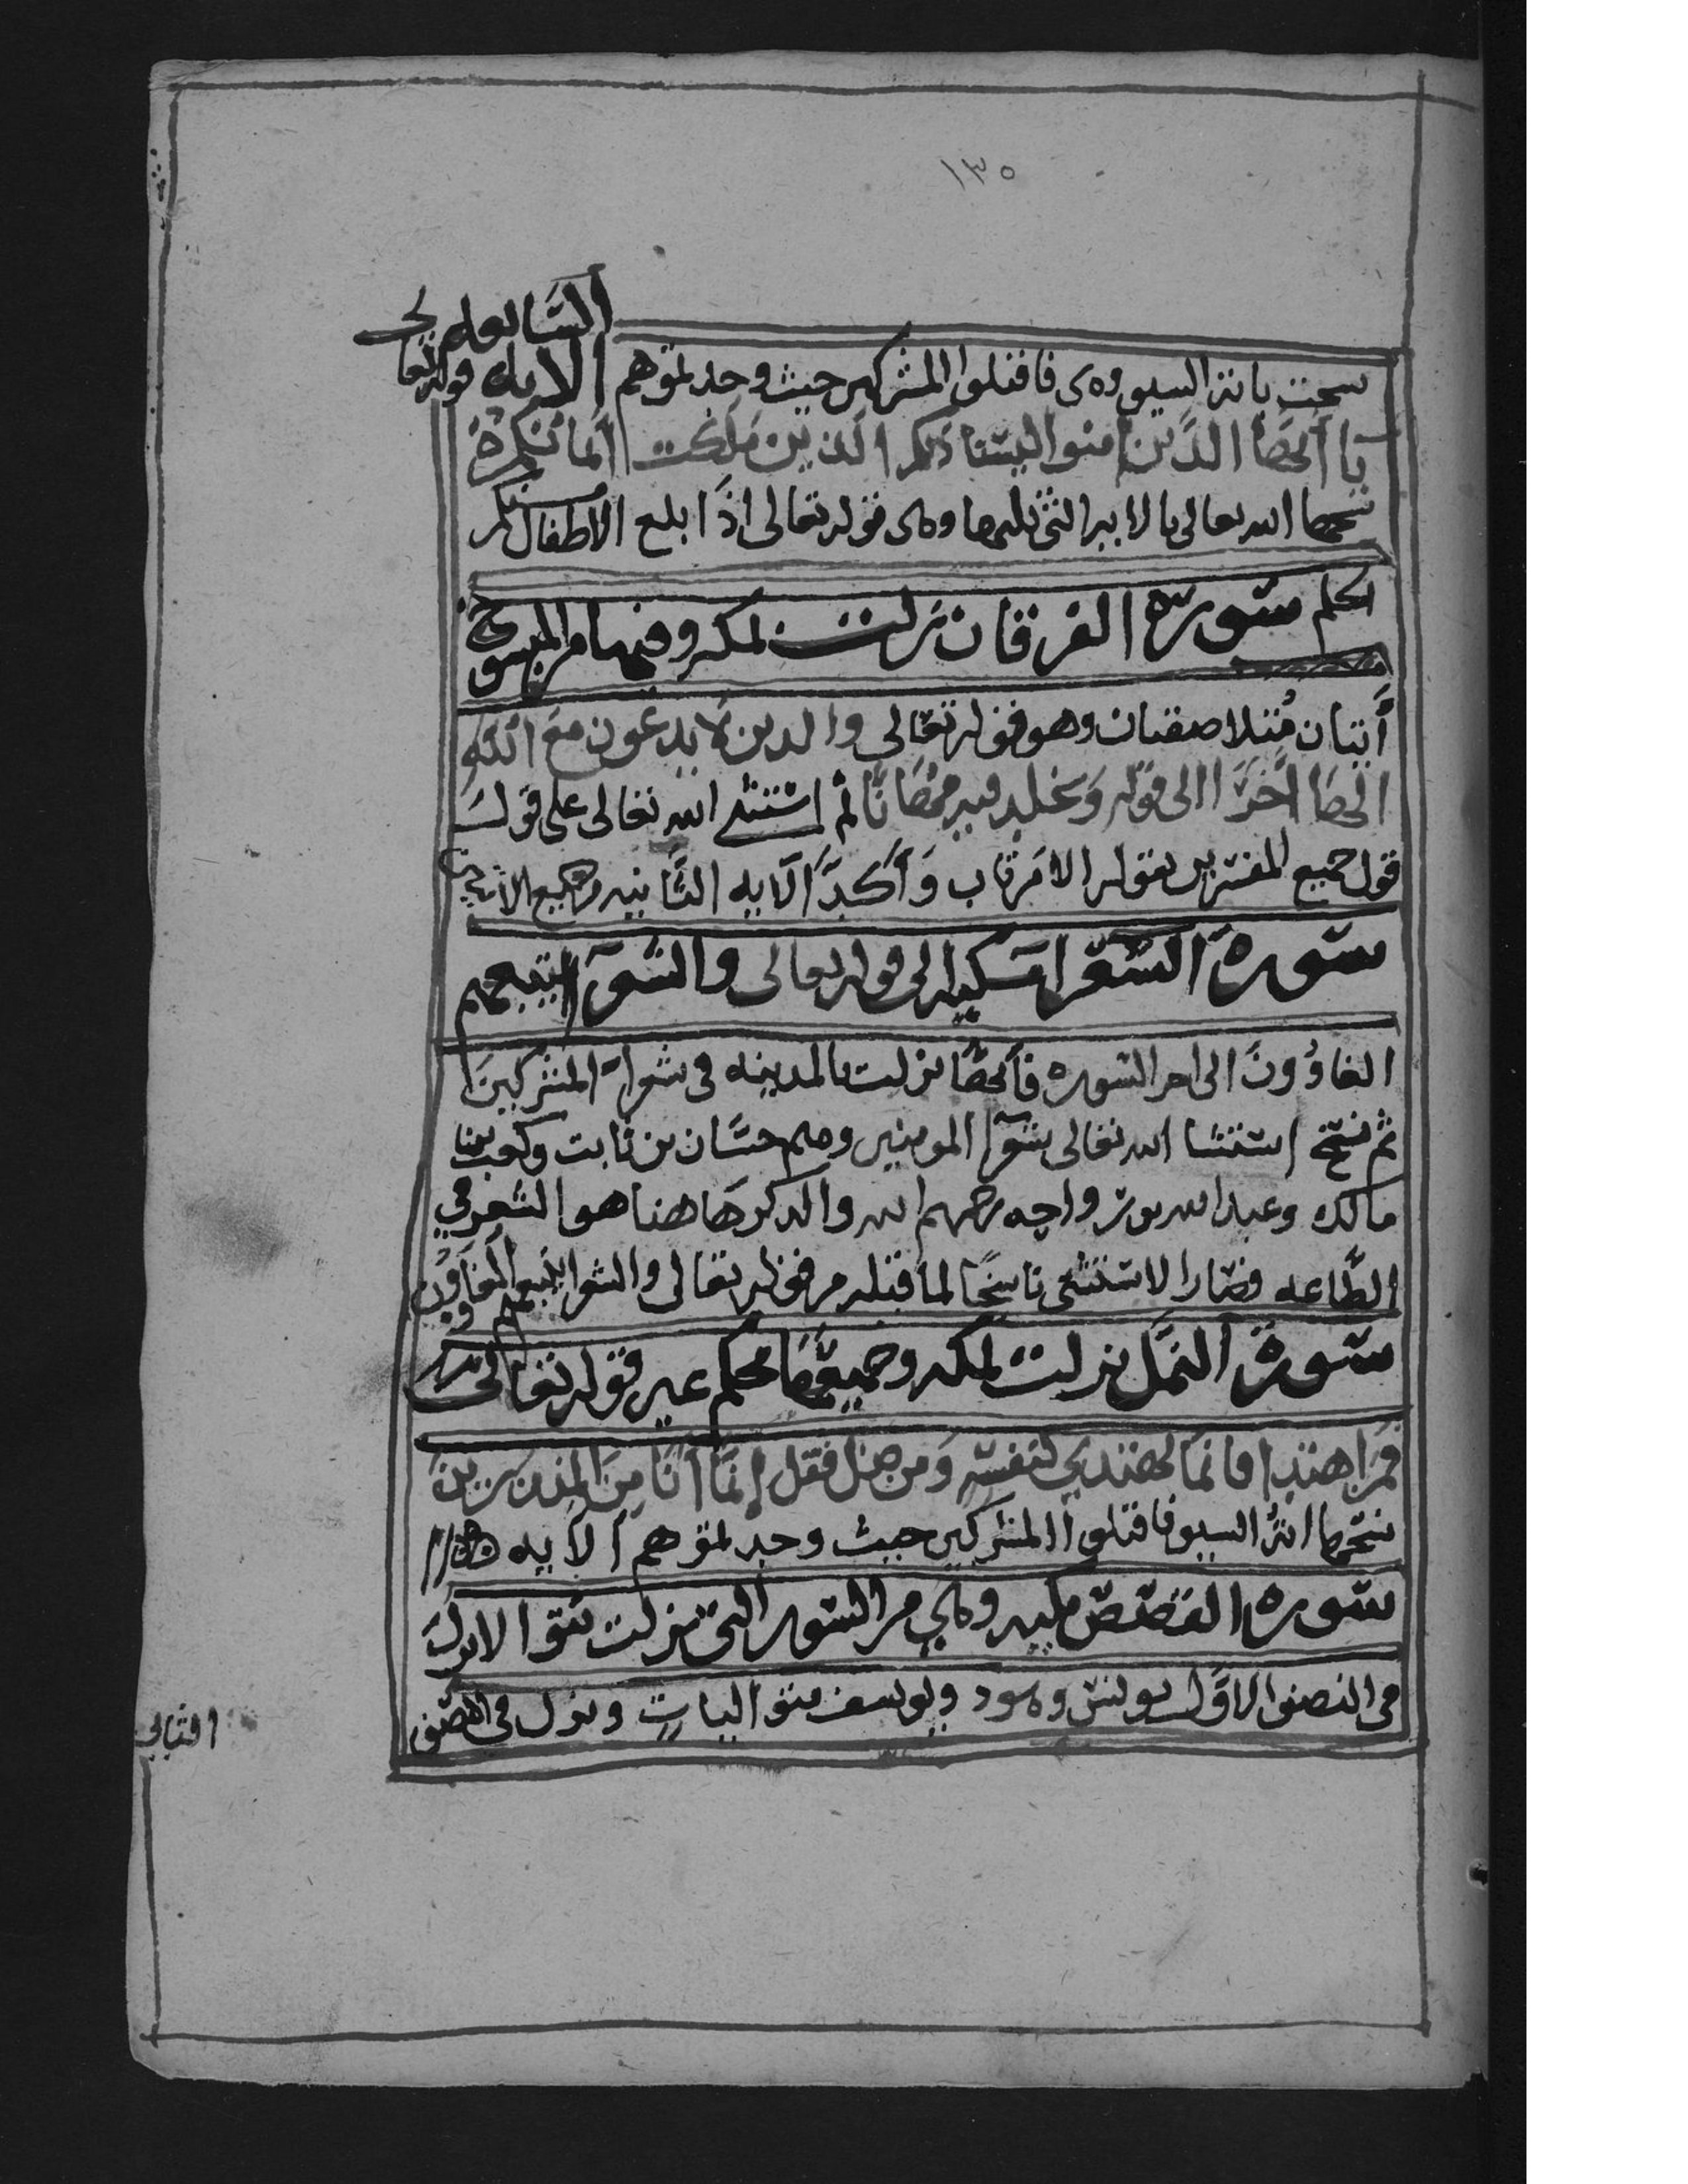 ١٣٥
السابعه
نسخت باية السيف وهى فاقتلوا المشركين حيث وجدتموهم الايه قوله تعا
يا أيها الذين امنوا ليستاذنكم الذين ملكت أيمانكم
نسخها الله تعالى بالايه التى تليها وهى قوله تعالى اذا بلغ الاطفال منكم
الحلم سورة الفرقان نزلت بمكه وفيها من المنسوخ
أيتان متلاصقتان وهو قوله تعالى والدين لا يدعون مع الله
الها اخر الى قوله ويخلد فيه مهانا ثم استثنى الله تعالى على قول
قول جميع المفسرين بقوله الا من تاب وأكد الايه الثانيه
سورة الشعرا مكيه الى قوله تعالى والشعرآ يتبعهم
الغاوون الى اخر السوره فأنها نزلت بالمدينه فى شعراء المشركين
ثم نسخ استثنا الله تعالى بشعرآ المومنين وهم حسان بن ثابت وكعب بن
مالك وعبد الله بن رواحه رحمهم الله والذكر هاهنا هو الشعر في
الطاعه فصار الاستثنى ناسخا لما قبله من قوله تعالى والشعرا يتبعهم الغاوون
سورة النمل نزلت بمكه وجميعها محكم غير قوله تعالى
فمن اهتدا فانما يهتدي لنفسه ومن ضل فقل إنما أنا من المنذرين
نسخها اية السيف فاقتلوا المشركين حيث وجدتموهم الايه
سوره القصص مكيه وهي من السور التى نزلت
فى النصف الاول يونس وهود ويوسف متواليات ونزل فى النصف